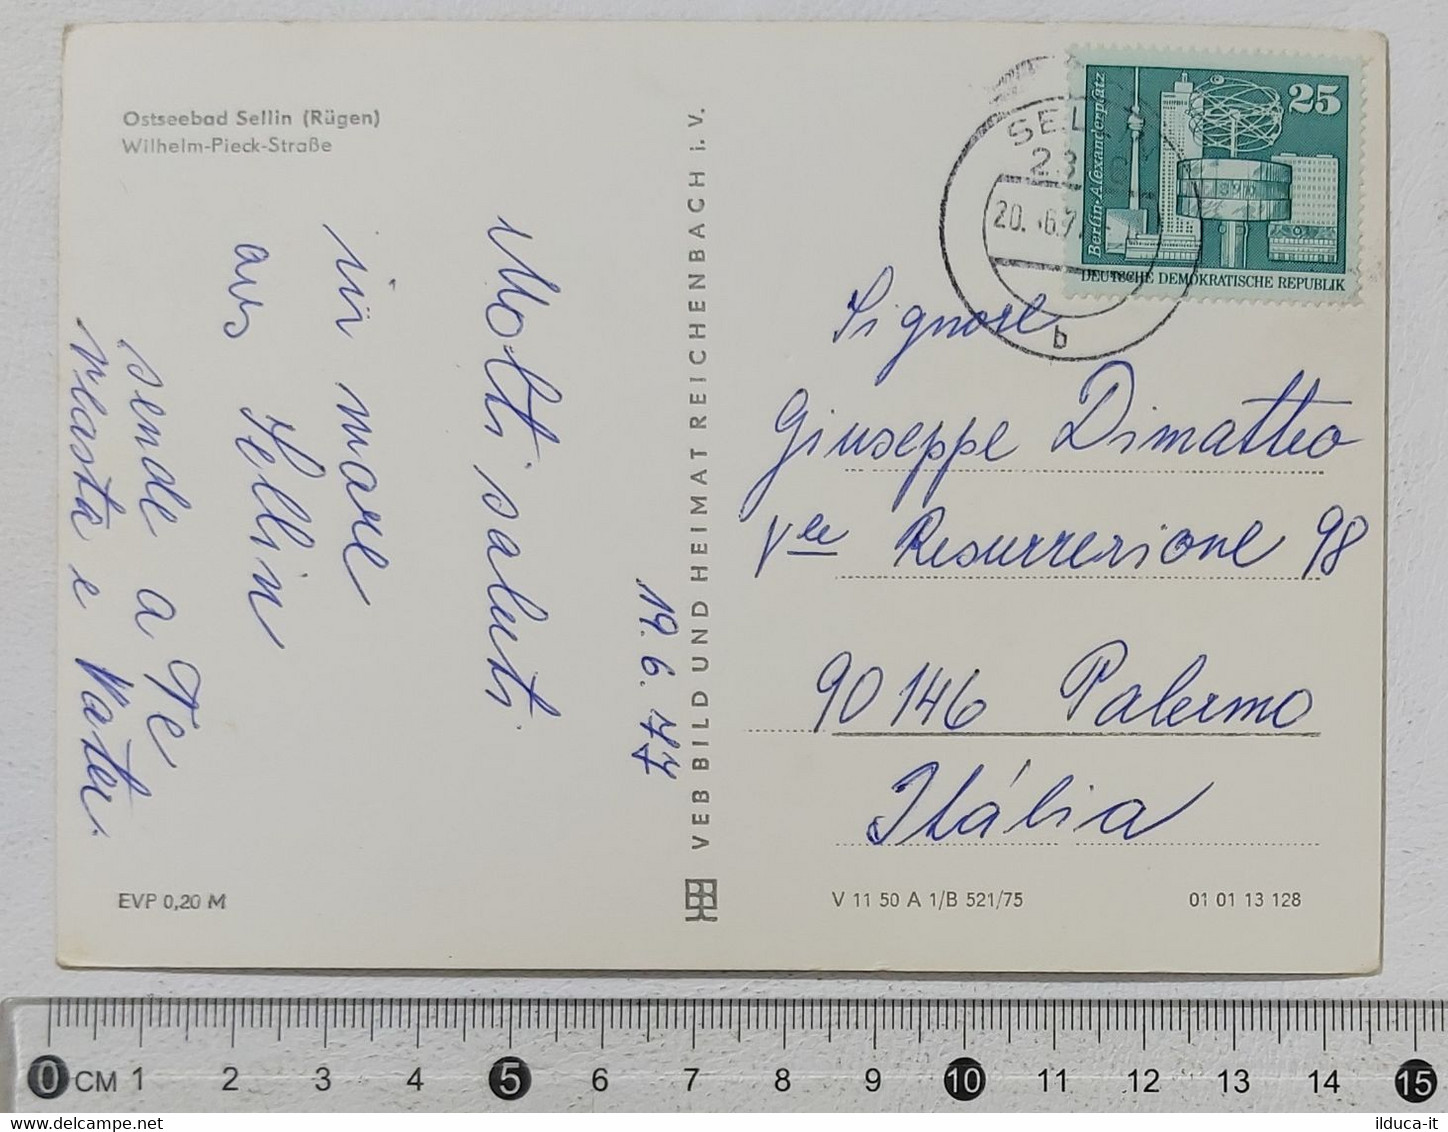 Ostseebad Sellin (Rügen)
Wilhelm-Pieck-Straße
Molti saluti
in mare
aus Sellin
sende a Te
e Vater.
19. 6. 77
VEB BILD UND HEIMAT REICHENBACH i. V.
SELLIN
23
20. 6.7
b
25
Berlin-Alexanderplatz
DEUTSCHE DEMOKRATISCHE REPUBLIK
Signore
Giuseppe Dimatteo
Vle Resurrezione 98
90146 Palermo
Itália
EVP 0,20 M
V 11 50 A 1/B 521/75
01 01 13 128
0 CM 1 2 3 4 5 6 7 8 9 10 11 12 13 14 15
www.delcampe.net
ilduca-it